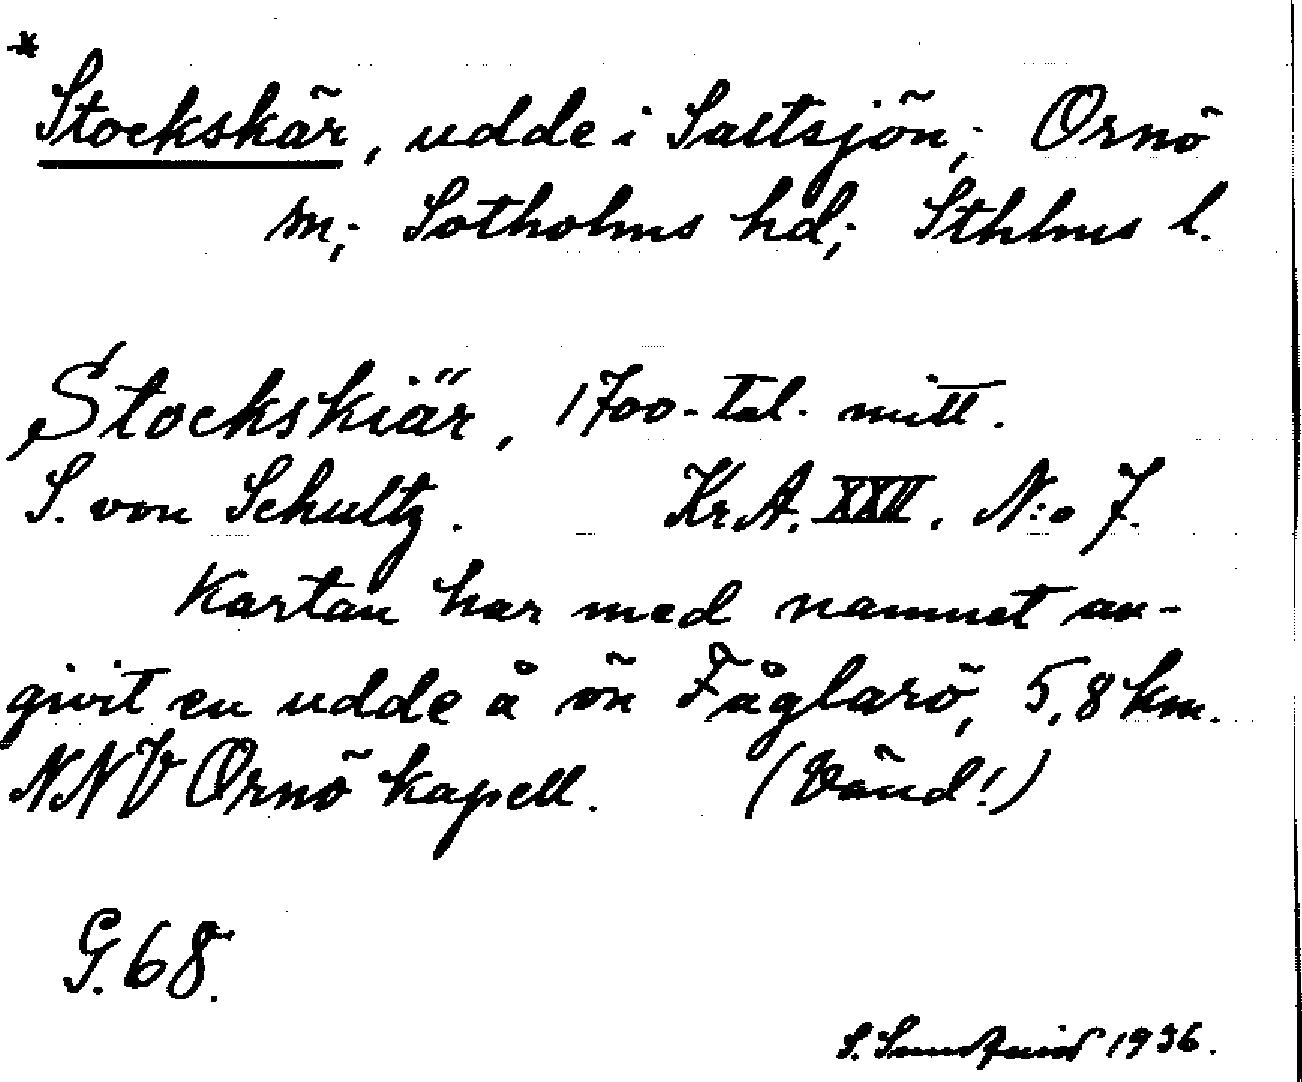 *
Stockskär, udde i Saltsjön; Ornö
sn; Sotholms hd; Sthlms l.
Stockskiär, 1700-tal. mitt.
S. von Schultz. Kr.A. XXII. N:o 7.
Kartan har med namnet an-
givit en udde å ön Fåglarö, 5,8 km.
NNV Ornö kapell. (Vänd!)
G. 68.
S. Sundqvist 1936.